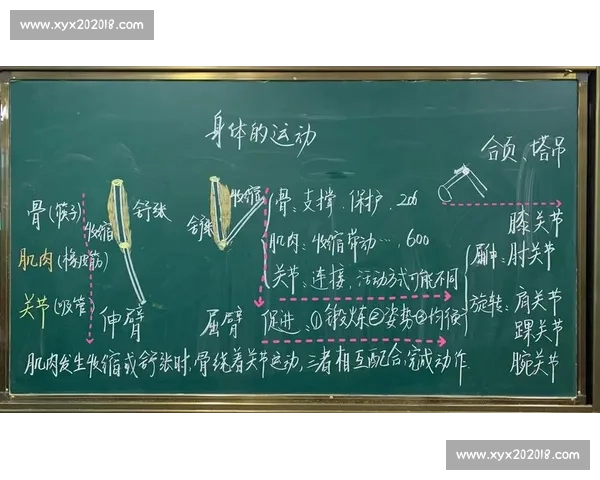 www.xyx202018.com
身体的运动
合页、塔吊
骨(筷子)
肌肉(橡皮筋)
关节(吸管)
收缩
舒张
伸臂
舒张
收缩
屈臂
骨:支撑、保护、206
肌肉:收缩带动…,600
关节:连接、活动方式可能不同
促进:①锻炼②姿势③均衡
屈伸:
膝关节
肘关节
旋转:
肩关节
踝关节
腕关节
肌肉发生收缩或舒张时,骨绕着关节运动,三者相互配合,完成动作.
www.xyx202018.com